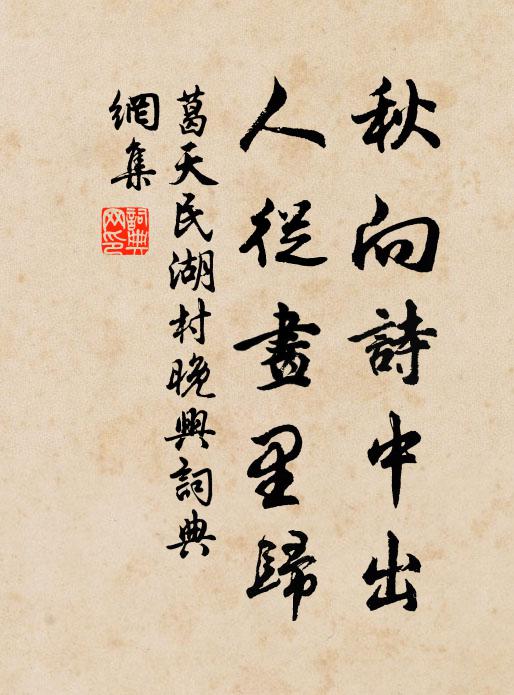 秋向詩中出
人從畫里歸
葛天民湖村晚興詞典
網集
詞典
网印